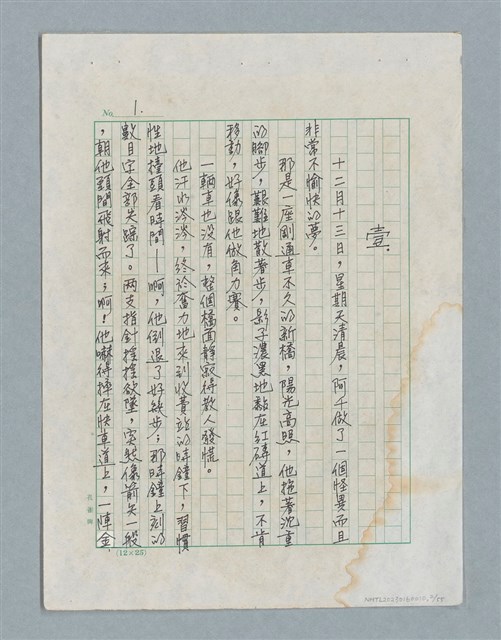 No. 1.
壹、
十二月十三日，星期天清晨，阿千做了一個怪異而且
非常不愉快的夢。
那是一座剛通車不久的新橋，陽光高照，他拖著沉重
的腳步，艱難地散著步，影子濃濃地黏在紅磚道上，不肯
移動，好像跟他做角力賽。
一輛車也沒有，整個橋面靜寂得教人發慌。
他汗水涔涔，終於奮力地來到收費站的時鐘下，習慣
性地擡頭看時間——啊，他倒退了好幾步；那時鐘上刻的
數目字全部失蹤了。两支指針搖搖欲墜，突然像箭矢一般
，朝他頸間飛射而來；啊！他嚇得摔在快車道上，一陣金
(12×25)